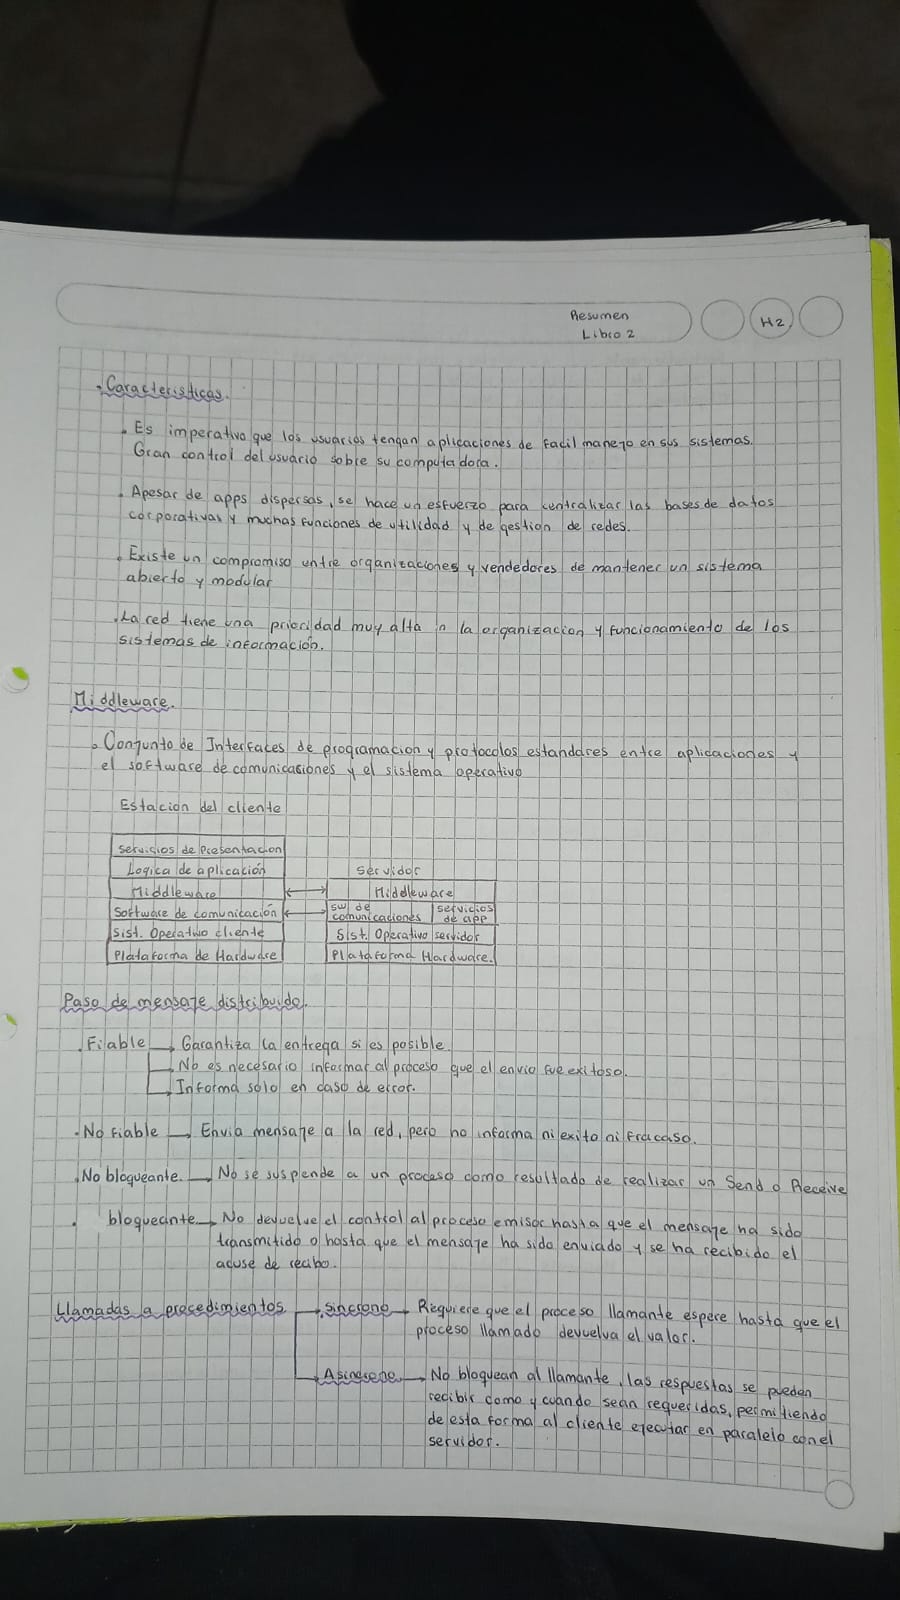 Resumen
Libro 2
H2
• Caracteristicas.
• Es imperativo que los usuarios tengan aplicaciones de facil manejo en sus sistemas.
Gran control del usuario sobre su computadora.
• Apesar de apps dispersas, se hace un esfuerzo para centralizar las bases de datos
corporativas y muchas funciones de utilidad y de gestion de redes.
• Existe un compromiso entre organizaciones y vendedores de mantener un sistema
abierto y modular
• La red tiene una prioridad muy alta n la organizacion y funcionamiento de los
sistemas de información.
Middleware.
• Conjunto de Interfaces de programacion y protocolos estandares entre aplicaciones y
el software de comunicaciones y el sistema operativo
Estacion del cliente
Servicios de Presentacion
Logica de aplicación
Servidor
Middleware ↔ Middleware
Software de comunicación ↔ sw de comunicaciones | servicios de app
Sist. Operativo cliente
Sist. Operativo servidor
Plataforma de Hardware
Plataforma Hardware.
Paso de mensaje distribuido.
• Fiable → Garantiza la entrega si es posible
→ No es necesario informar al proceso que el envio fue exitoso.
→ Informa solo en caso de error.
• No fiable → Envia mensaje a la red, pero no informa ni exito ni fracaso.
• No bloqueante. → No se suspende a un proceso como resultado de realizar un Send o Receive
• bloqueante → No devuelve el control al proceso emisor hasta que el mensaje ha sido
transmitido o hasta que el mensaje ha sido enviado y se ha recibido el
acuse de recibo.
Llamadas a procedimientos → sincrono → Requiere que el proceso llamante espere hasta que el
proceso llamado devuelva el valor.
→ Asincrono → No bloquean al llamante, las respuestas se pueden
recibir como y cuando sean requeridas, permitiendo
de esta forma al cliente ejecutar en paralelo con el
servidor.